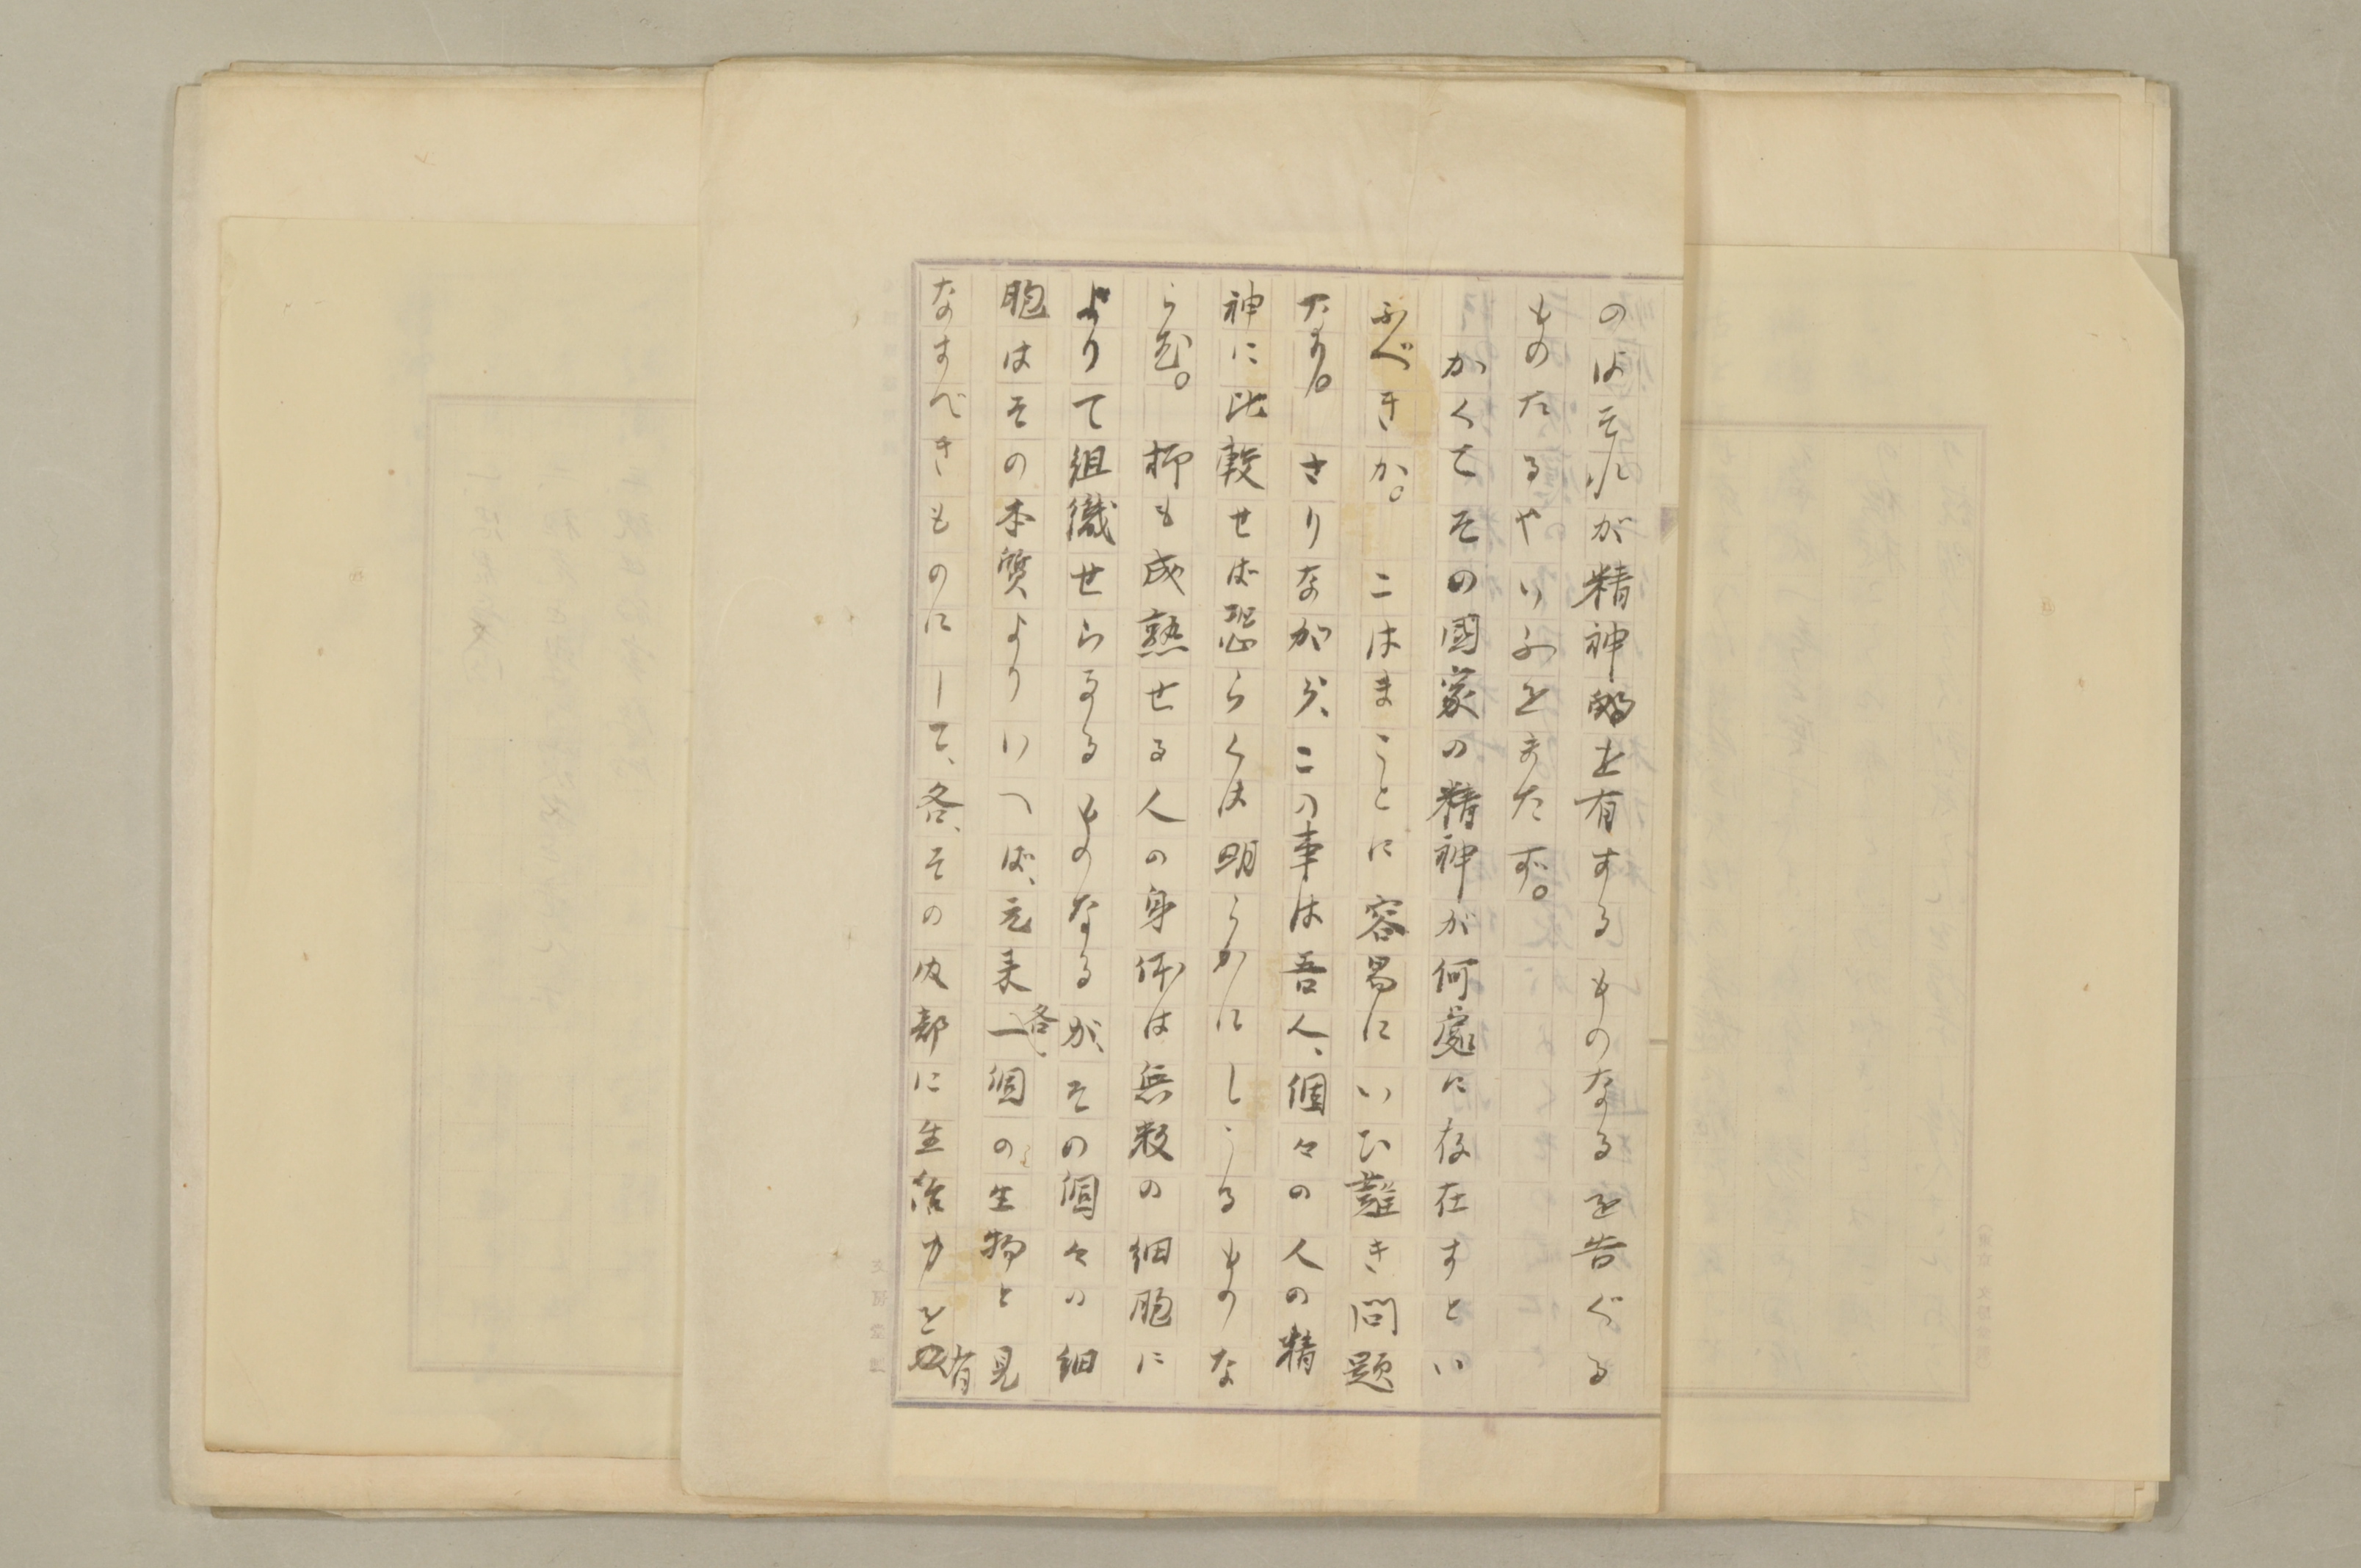 のはそれが精神的生有するものなるを告ぐる
ものたるやいふをまたず。
かくてその國家の精神が何處に存在すとい
ふべきか。こはまことに容易にいひ難き問題
なり。さりながら、この事は吾人、個々の人の精
神に比較せば恐らくは明らかにしうるものな
らむ。抑も成熟せる人の身体は無数の細胞に
よりて組織せらるるものなるが、その個々の細
胞はその本質よりいへば、元来各、一個の生物と見
なすべきものにして、各、その内部に生活力を有